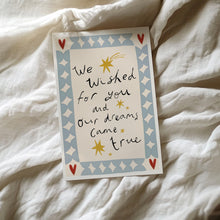 We
wished
for you
and
our dreams
came
true